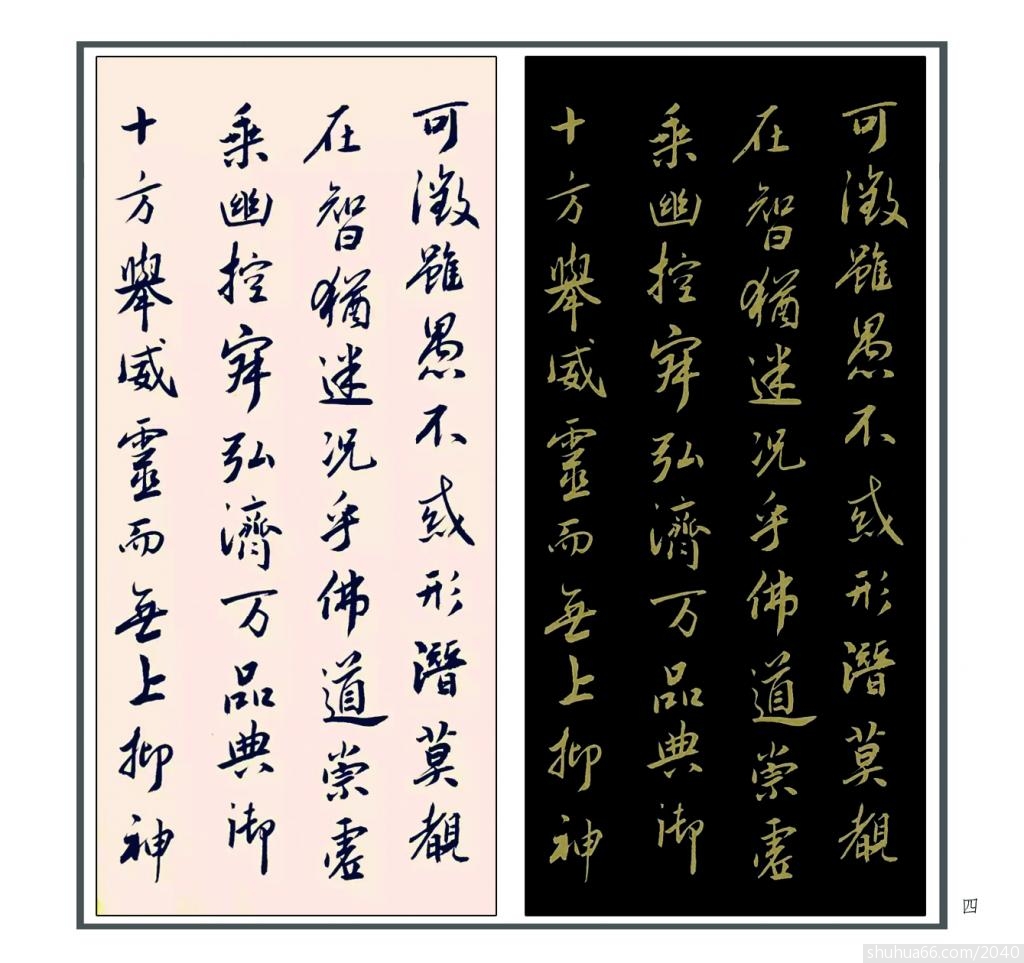 可徵雖愚不惑形潛莫覩
在智猶迷況乎佛道崇虛
乘幽控寂弘濟万品典御
十方舉威靈而無上抑神
可徵雖愚不惑形潛莫覩
在智猶迷況乎佛道崇虛
乘幽控寂弘濟万品典御
十方舉威靈而無上抑神
四
shuhua66.com/2040